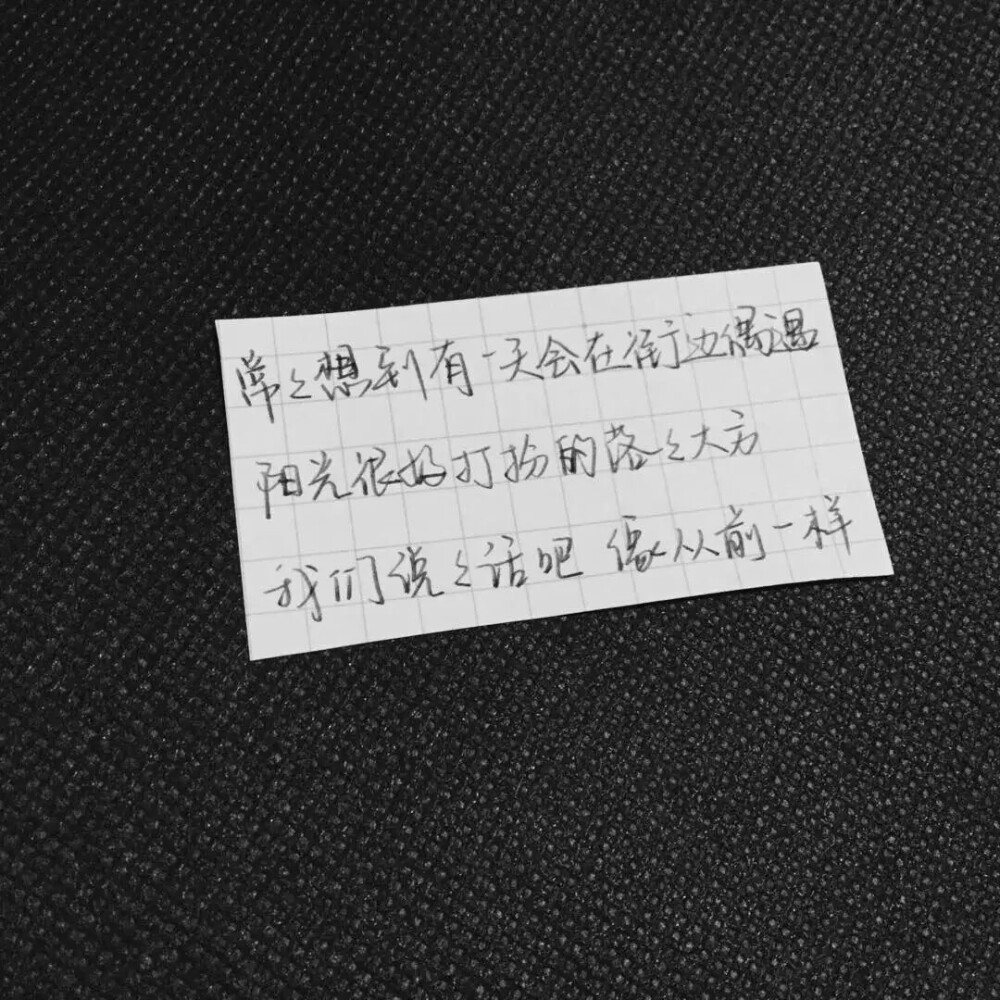 常々想到有一天会在街边偶遇
阳光很好打扮的落々大方
我们说々话吧 像从前一样